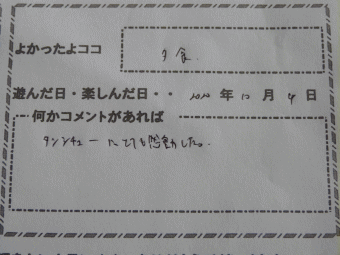 よかったよココ
夕食.
遊んだ日・楽しんだ日・・ 2020 年 12 月 4 日
何かコメントがあれば
タンシチューにとても感動した。